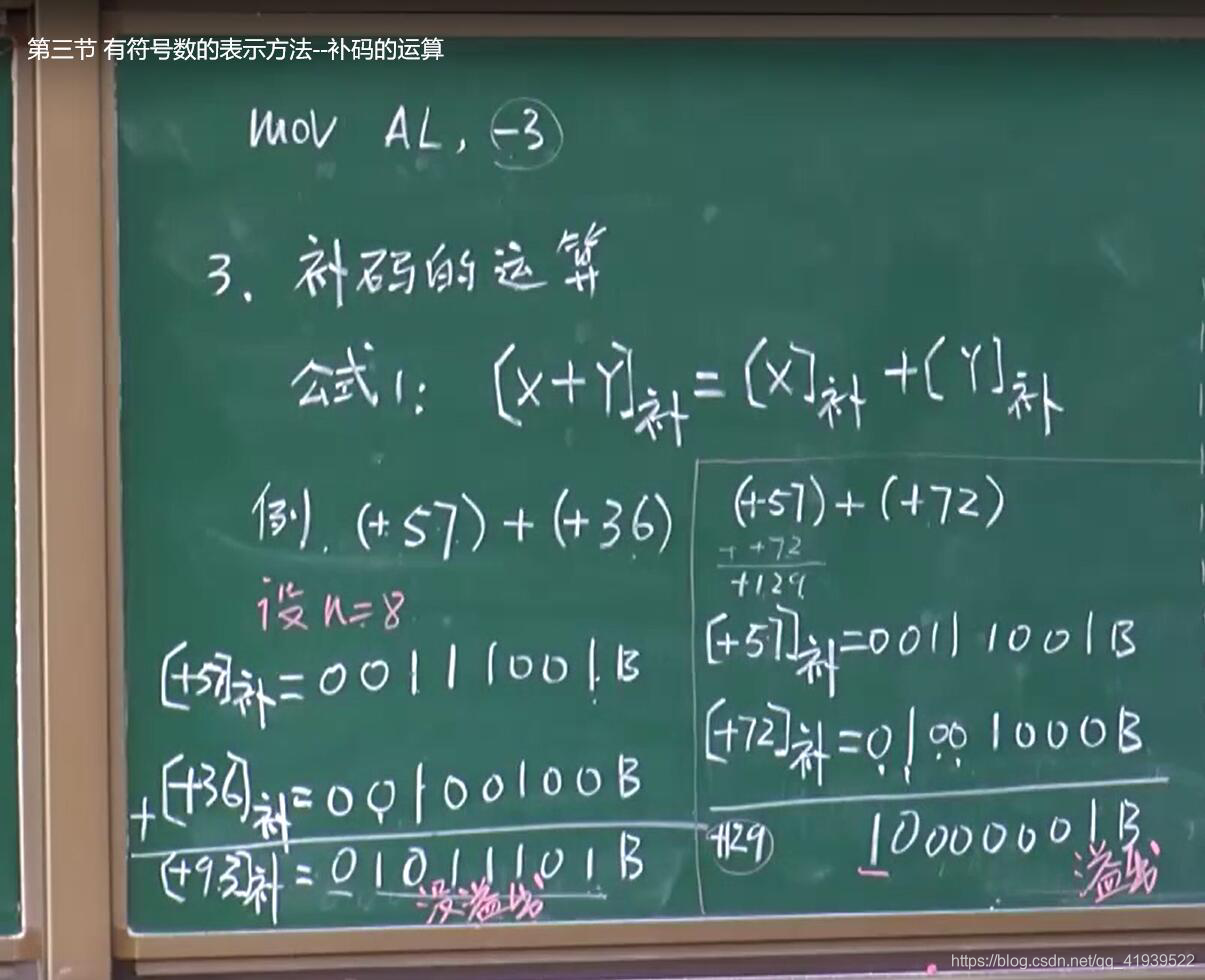 第三节 有符号数的表示方法--补码的运算
mov AL, -3
3. 补码的运算
公式1: [X+Y]补=[X]补+[Y]补
例. (+57)+(+36)
设n=8
[+57]补=00111001B
+[+36]补=00100100B
[+93]补=01011101B
没溢出
(+57)+(+72)
+ +72
+129
[+57]补=00111001B
[+72]补=01001000B
+129 10000001B
溢出
https://blog.csdn.net/qq_41939522